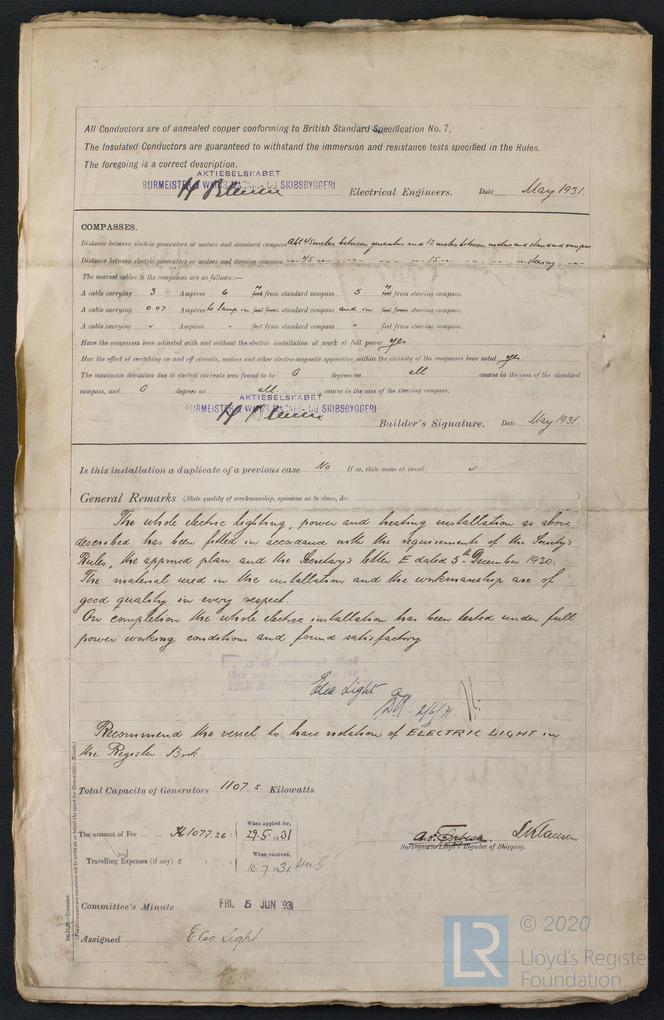 All Conductors are of annealed copper conforming to British Standard Specification No. 7.
The Insulated Conductors are guaranteed to withstand the immersion and resistance tests specified in the Rules.
The foregoing is a correct description.
AKTIESELSKABET
BURMEISTER & WAIN'S MASKIN- OG SKIBSBYGGERI
Electrical Engineers. Date May 1931
COMPASSES.
Distance between electric generators or motors and standard compass abt 45 meter between generator and 12 meter between motor and standard compass
Distance between electric generators or motors and steering compass -"- 45 -"- -"- -"- -"- 15 -"- -"- -"- steering -"-
The nearest cables to the compasses are as follows:—
A cable carrying 3 Ampères 6 feet from standard compass 5 feet from steering compass.
A cable carrying 0.07 Ampères to lamp in feet from standard compass and in feet from steering compass.
A cable carrying " Ampères " feet from standard compass " feet from steering compass.
Have the compasses been adjusted with and without the electric installation at work at full power yes
Has the effect of switching on and off circuits, motors and other electro-magnetic apparatus within the vicinity of the compasses been noted yes
The maximum deviation due to electric currents was found to be 0 degrees on all course in the case of the standard
compass, and 0 degrees on all course in the case of the steering compass.
AKTIESELSKABET
BURMEISTER & WAIN'S MASKIN- OG SKIBSBYGGERI
Builder's Signature. Date May 1931
Is this installation a duplicate of a previous case No If so, state name of vessel
General Remarks (State quality of workmanship, opinions as to class, &c.
The whole electric lighting, power and heating installation as above
described has been fitted in accordance with the requirements of the Society's
Rules, the approved plan and the Secretary's letter E dated 5th December 1930.
The material used in the installation and the workmanship are of
good quality in every respect.
On completion the whole electric installation has been tested under full
power working conditions and found satisfactory
Elec Light
2/6/31
Recommend the vessel to have notation of ELECTRIC LIGHT in
the Register Book.
Total Capacity of Generators 1107.5 Kilowatts.
The amount of Fee ... ... Kr 1077.26 : When applied for, 29.5.1931
Travelling Expenses (if any) £ : : When received, 10.7.1931
Surveyor to Lloyd's Register of Shipping.
Committee's Minute FRI. 5 JUN 1931
Assigned Elec Light
© 2020
LR
Lloyd's Register
Foundation